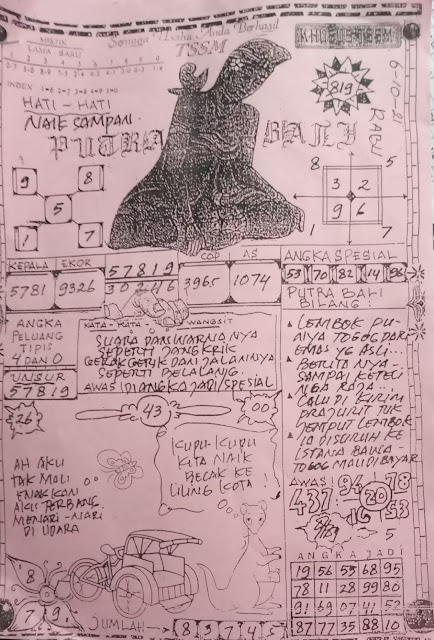 MISTIK
LAMA BARU
Semoga Usaha Anda Berhasil
TSSM
1 2 3 4 5 6 7 8 9 0
INDEX
HATI - HATI
NAIK SAMPAN.
PUTRA BALI
819
6-10-21
RABU
9 8
5
1 7
8 5
3 2
9 6
1 7
KEPALA EKOR
5781 9326
57819
30246
COP AS
3965 1074
ANGKA SPESIAL
53 70 82 14 96
PUTRA BALI
BILANG:
ANGKA
PELUANG
TIPIS
4 DAN 0
UNSUR
57819
26
KATA - KATA WANGSIT
SUARA DAN WARNANYA
SEPERTI JANGKRIK
GERAK GERIK DAN JALANNYA
SEPERTI BELALANG.
AWAS DIANGKA JADI SPESIAL
43
00
LEMBOK PU-
NYA TOGOG DARI
EMAS YG ASLI...
BERITA NYA
SAMPAI KETELI
NGA RAJA.
LALU DI KIRIM
PRAJURIT TUK
JEMPUT LEMBOK
IA DISURUH KE
ISTANA BAWA
TOGOG MAU DIBAYAR
KUPU-KUPU
KITA NAIK
BECAK KE
LILING KOTA!
AH AKU
TAK MAU
ENAKKAN
AKU TERBANG.
MENARI-NARI
DI UDARA
AWAS! 94 78
437 20
16 53
8
7 9
5
ANGKA JADI
19 56 53 68 95
78 11 28 99 80
91 69 07 41 52
87 77 35 88 10
JUMLAH 8 3 7 4 5